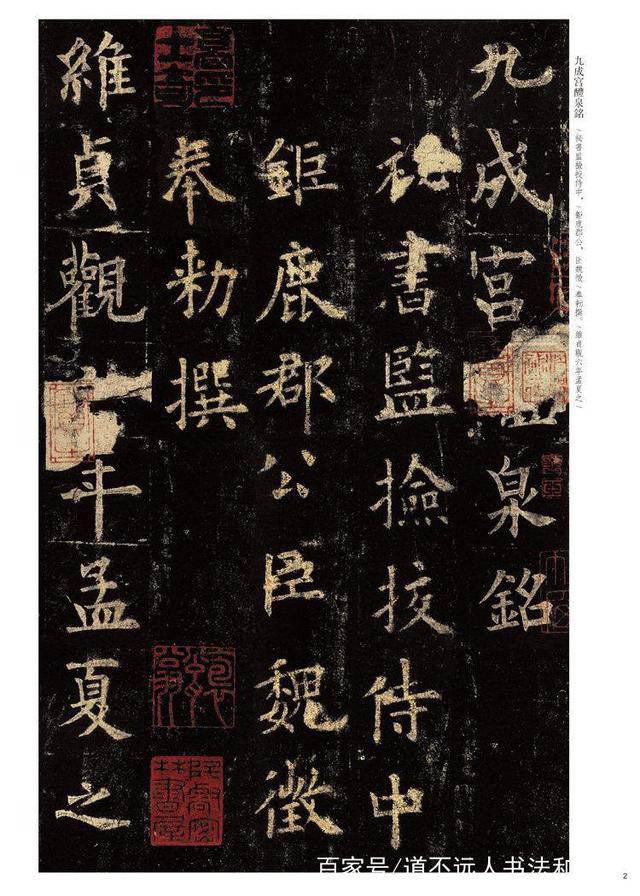 九成宮醴泉銘
/秘書監撿校侍中,/鉅鹿郡公,臣魏徵/奉勅撰。/維貞觀六年孟夏之/
九成宮泉銘
祕書監撿挍侍中
鉅鹿郡公臣魏徵
奉勅撰
維貞觀六年孟夏之
百家号/道不远人书法和
2